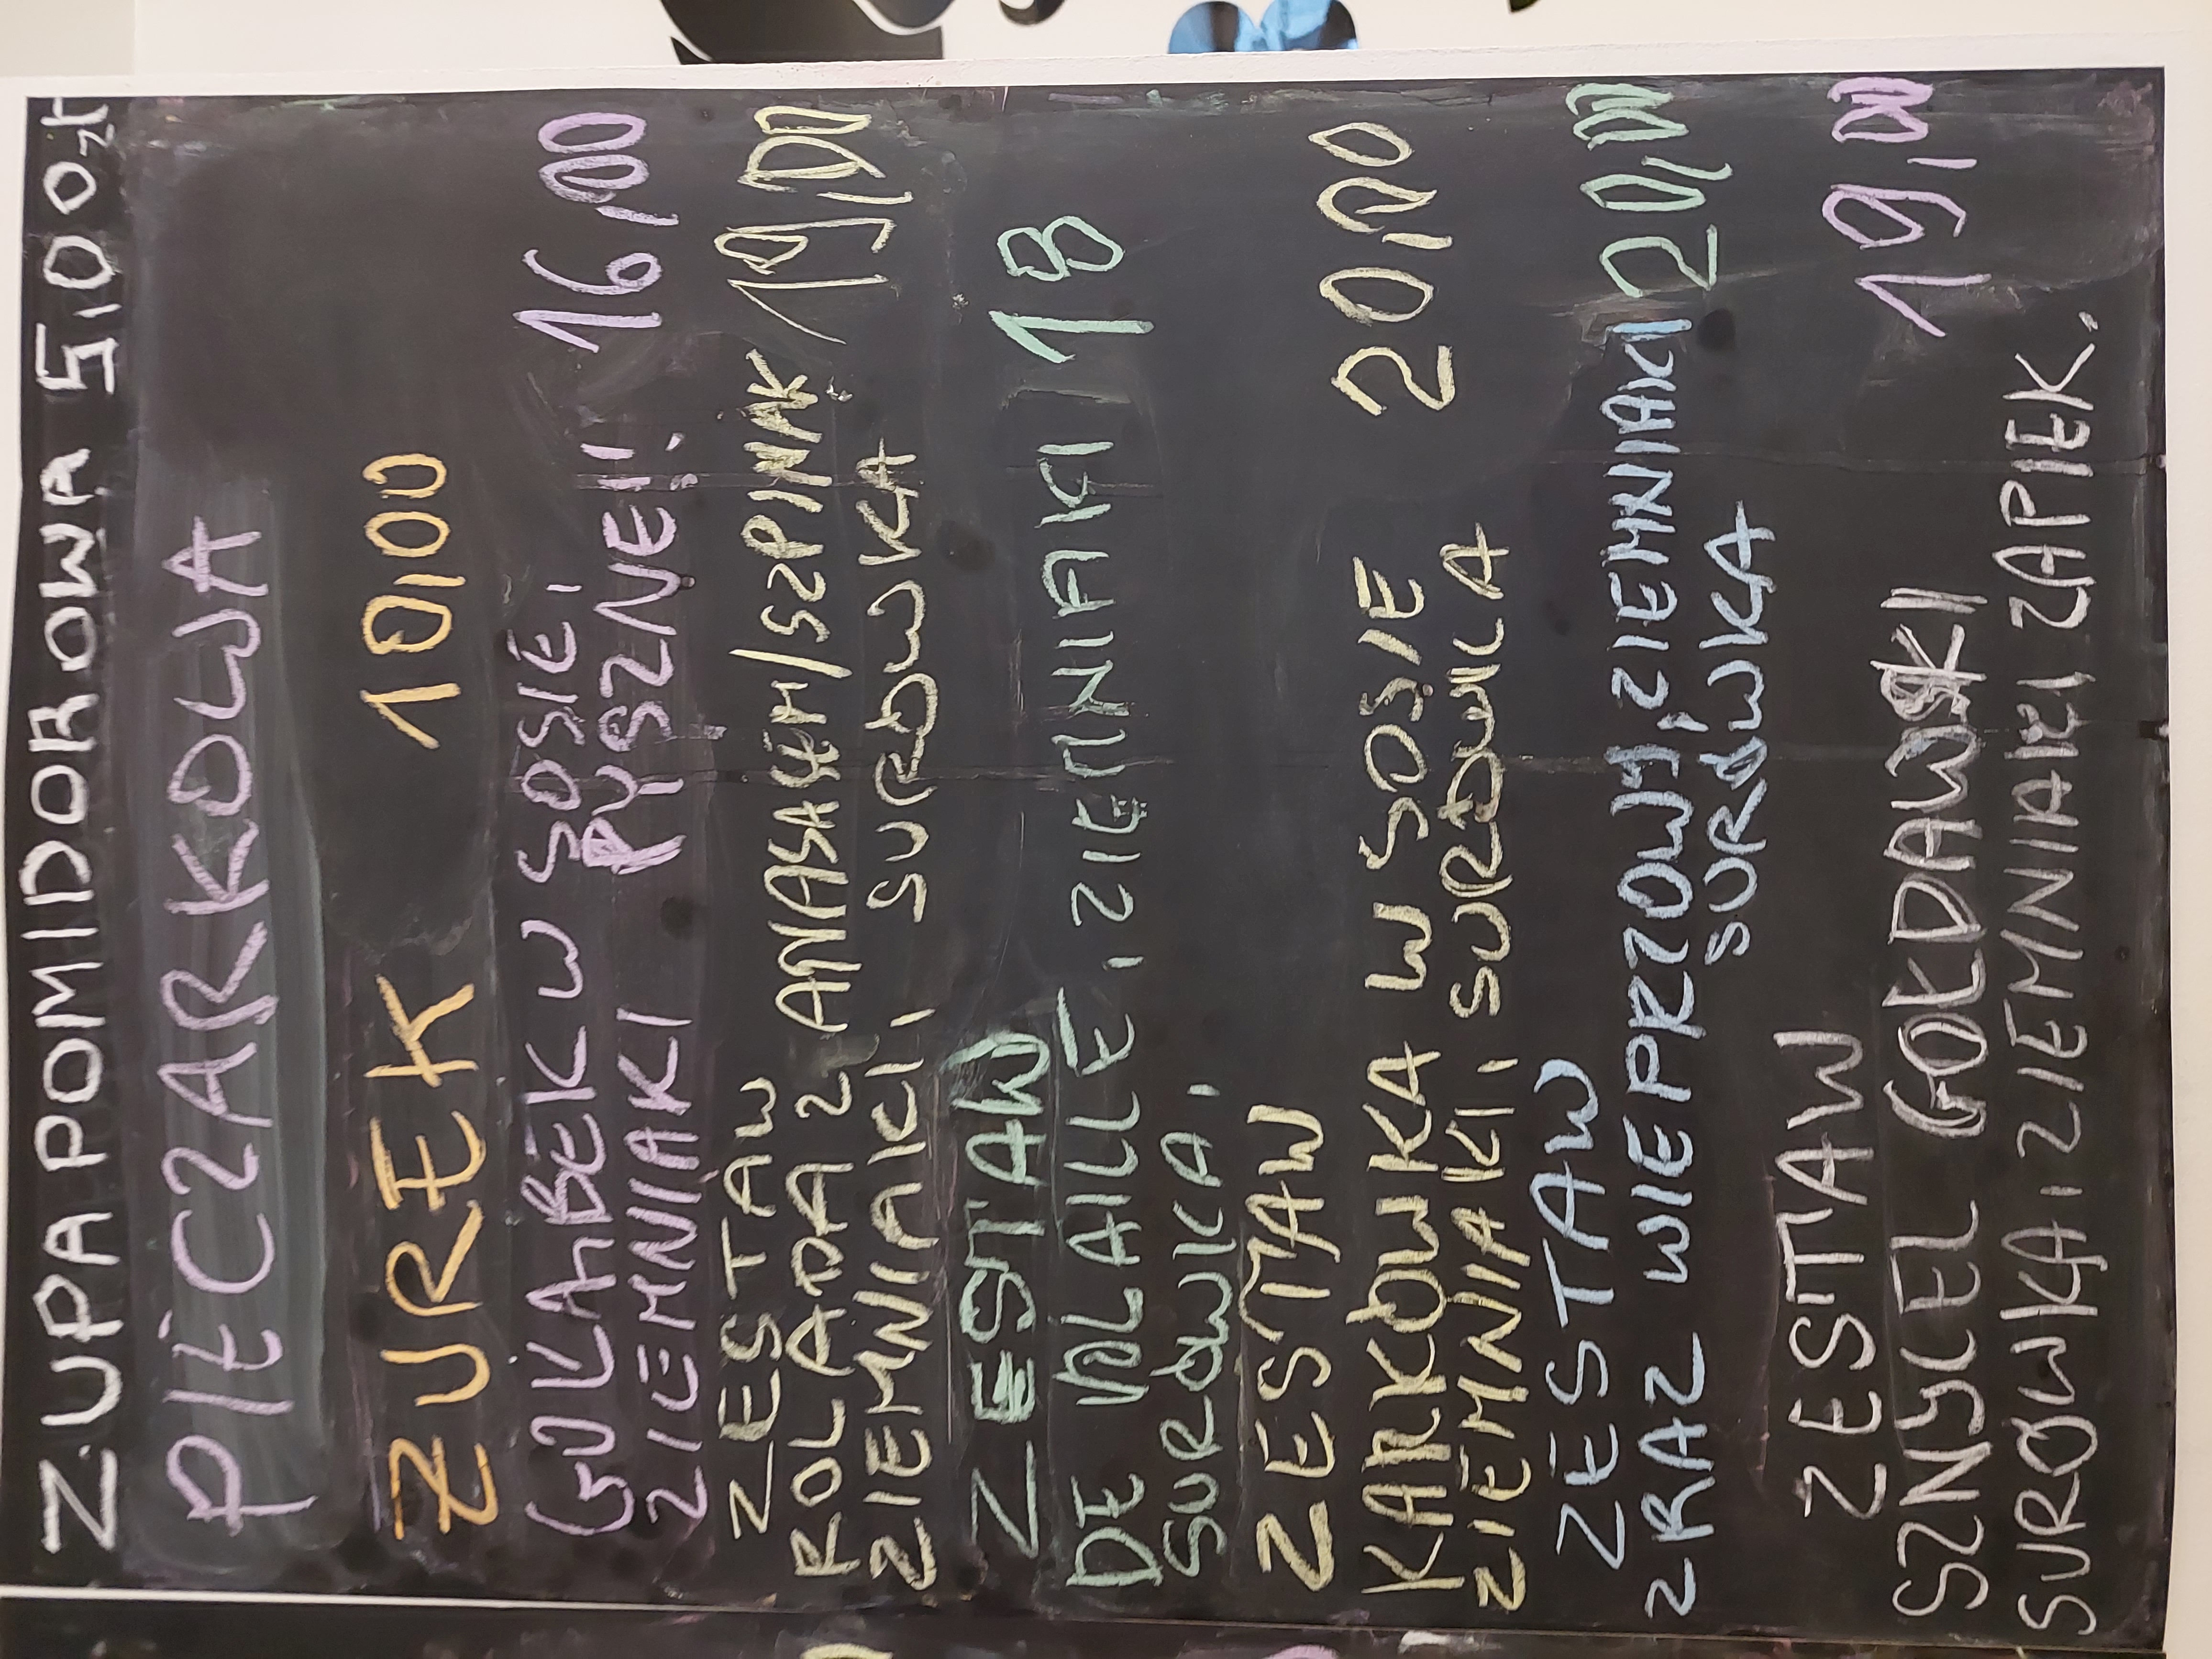 ZUPA POMIDOROWA 5,00zł
PIECZARKOWA
ŻUREK 10,00
GOŁĄBEK W SOSIE,
ZIEMNIAKI PYSZNE!! 16,00
ZESTAW
ROLADA Z ANANASEM/SZPINAK 19,00
ZIEMNIAKI, SURÓWKA
ZESTAW
DE VOLAILLE, ZIEMNIAKI 18
SURÓWKA,
ZESTAW
KARKÓWKA W SOSIE 20,00
ZIEMNIAKI, SURÓWKA
ZESTAW
ZRAZ WIEPRZOWY, ZIEMNIAKI 20,00
SURÓWKA
ZESTAW
SZNYCEL GOŁDAWSKI 19,00
SURÓWKA, ZIEMNIAKI ZAPIEK.